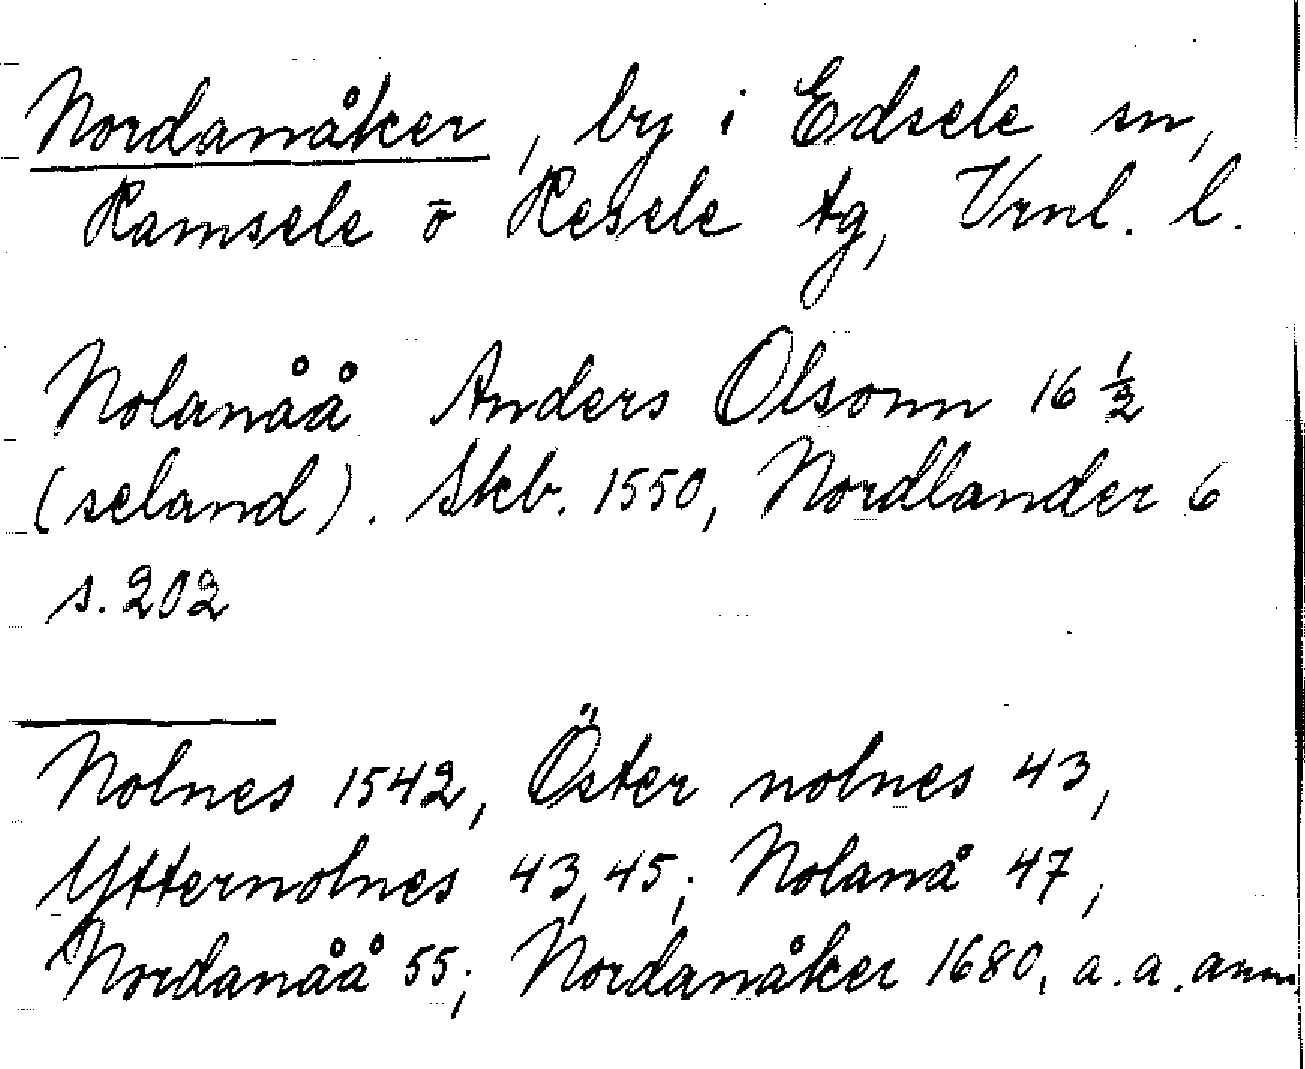 Nordanåker, by i Edsele sn,
Ramsele o Resele tg, Vrnl. l.
Nolanåå Anders Olsonn 16 ½
(seland). Skb. 1550, Nordlander 6
s. 202
Nolnes 1542, Öster nolnes 43,
Ytternolnes 43, 45; Nolanå 47,
Nordanåå 55; Nordanåker 1680, a. a. anm